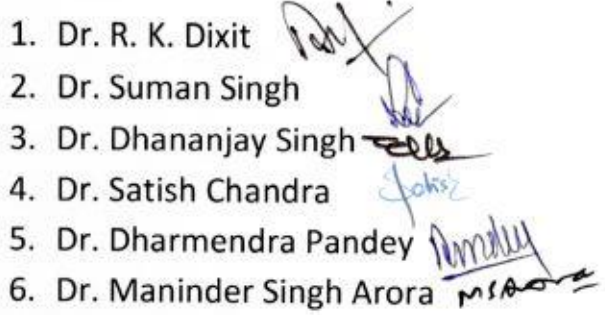 1. Dr. R. K. Dixit
2. Dr. Suman Singh
3. Dr. Dhananjay Singh
4. Dr. Satish Chandra Satish
5. Dr. Dharmendra Pandey Pandey
6. Dr. Maninder Singh Arora MSArora